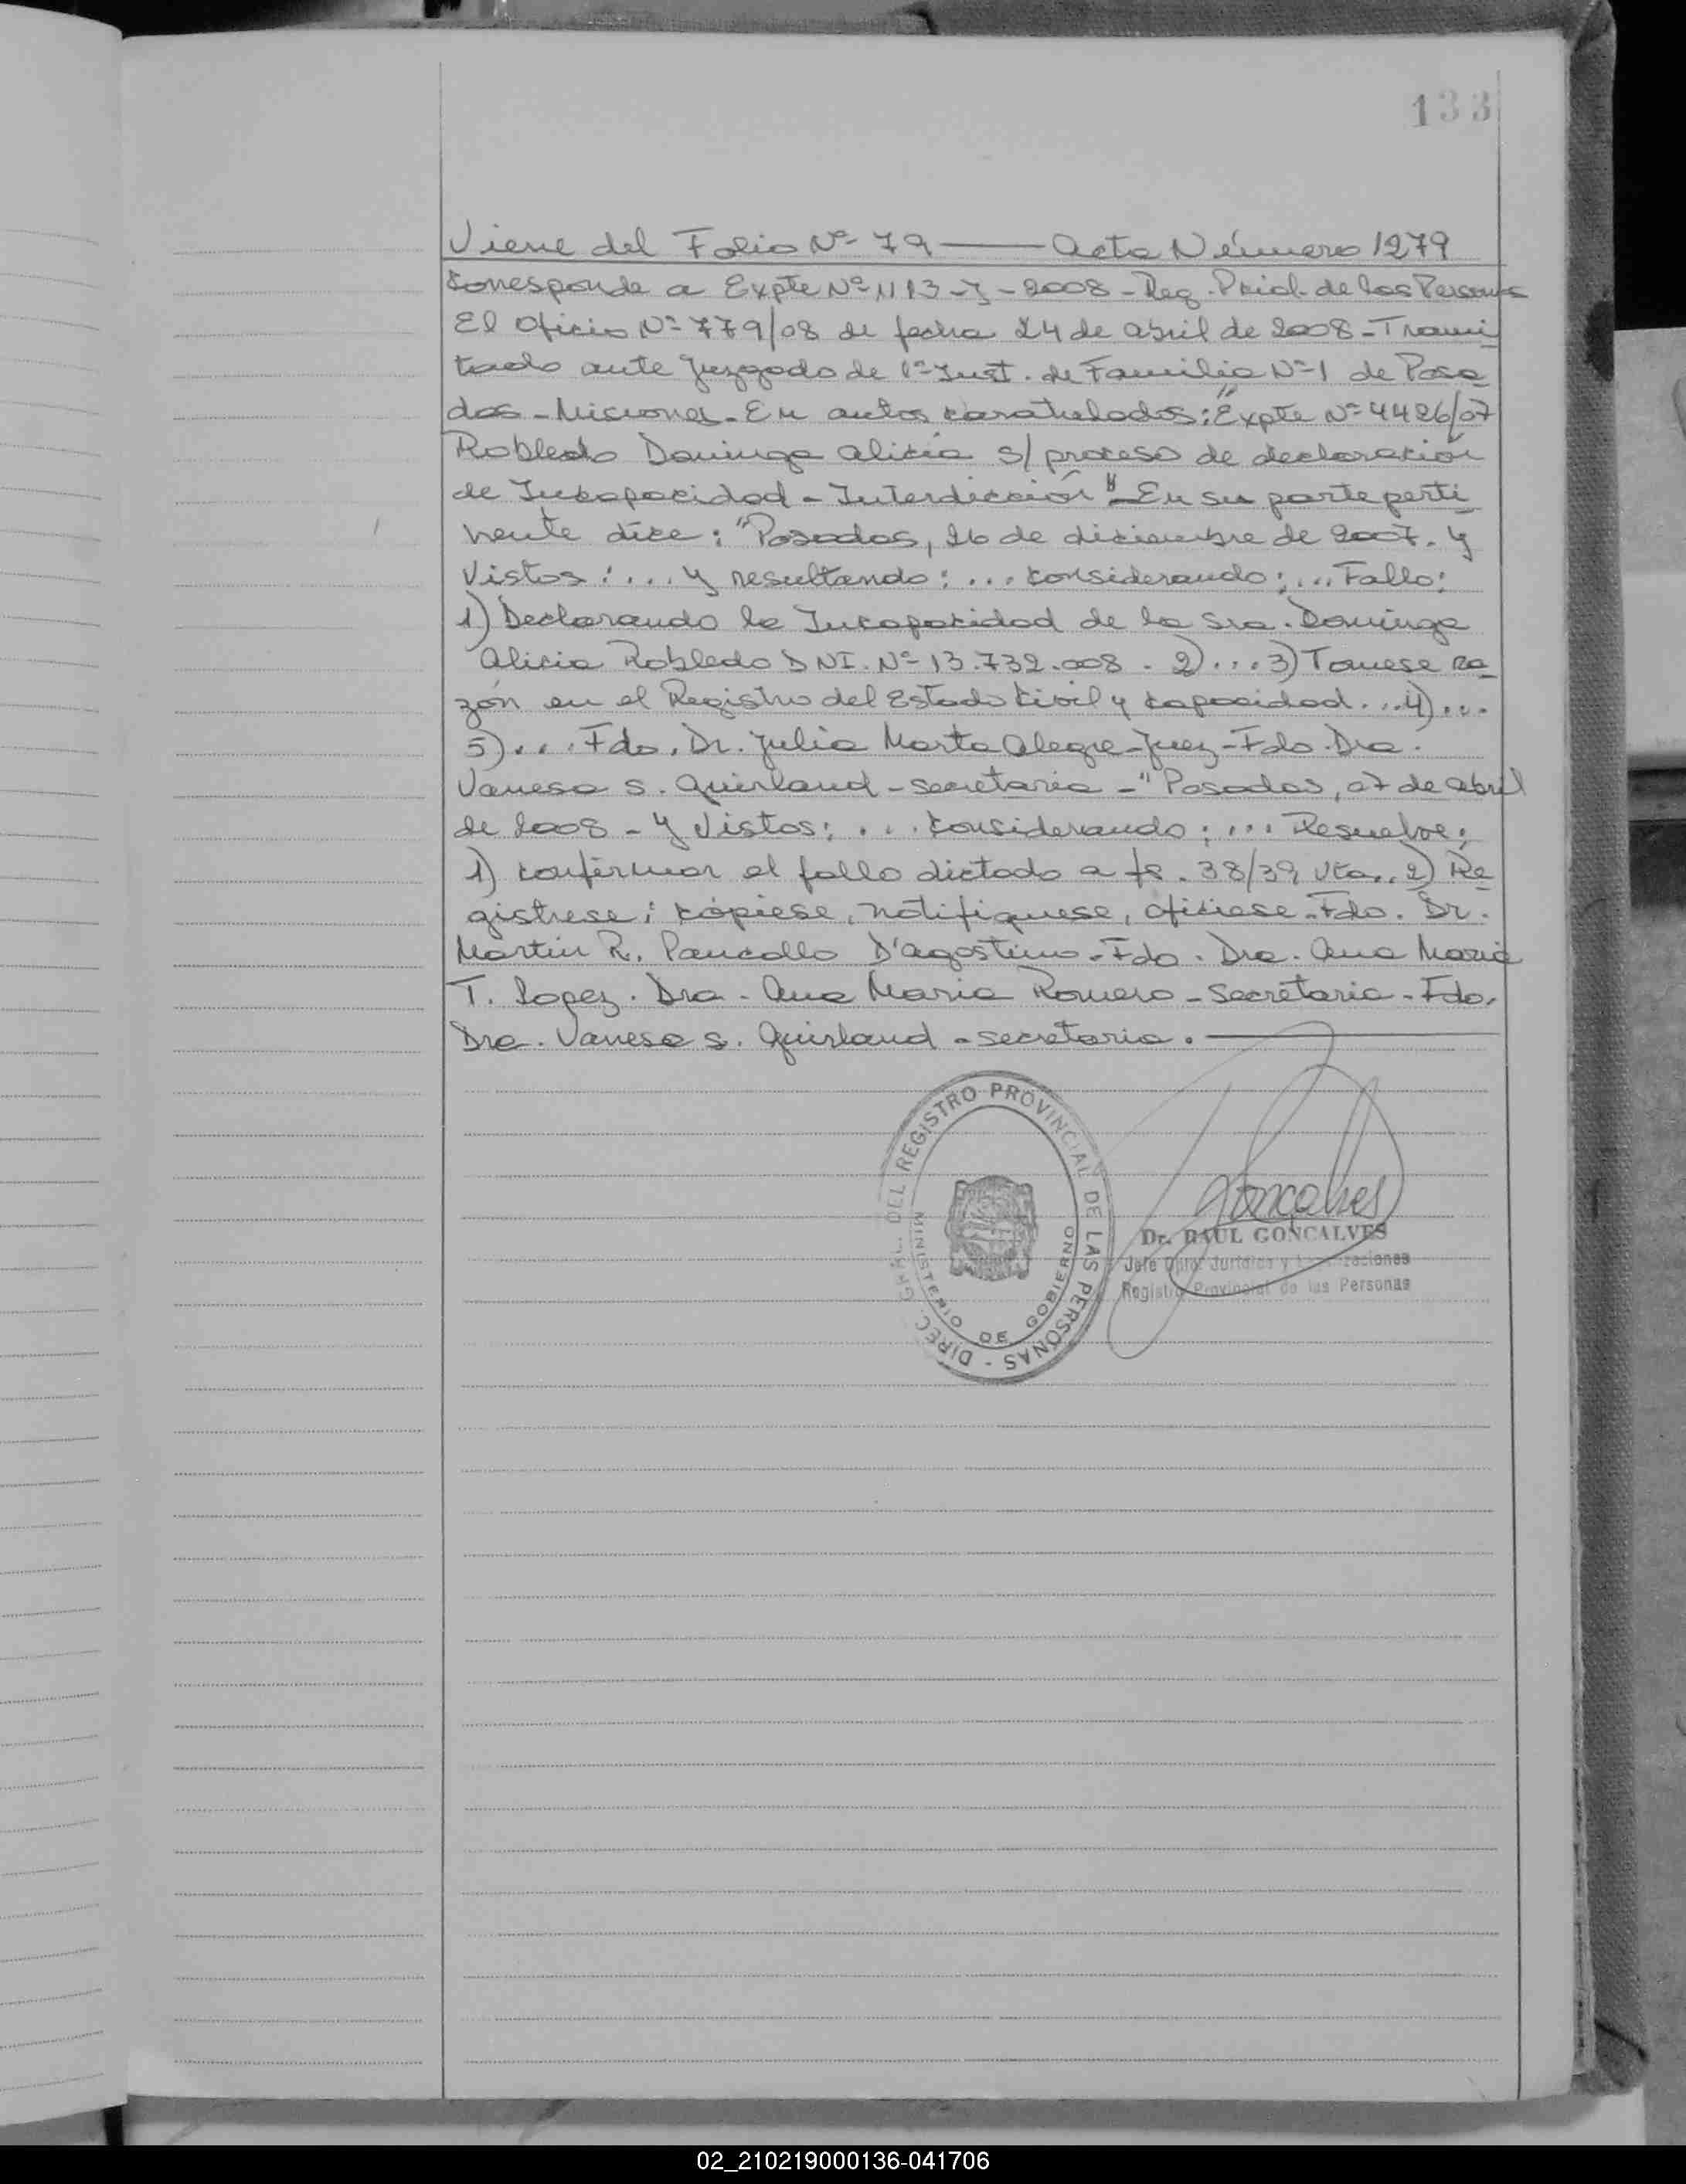 133
Viene del Folio Nº 79 — Acta Número 1279
Corresponde a Expte Nº 1113-J-2008-Reg. Pcial. de las Personas
El Oficio Nº 779/08 de fecha 24 de abril de 2008-Trami
tado ante Juzgado de 1ª Inst. de Familia Nº 1 de Posa
das-Misiones-En autos caratulados: "Expte Nº 4426/07
Robledo Dominga Alicia s/ proceso de declaración
de Incapacidad-Interdicción"-En su parte perti
nente dice: "Posadas, 26 de diciembre de 2007. Y
Vistos:... y resultando:... considerando:... Fallo:
1) Declarando la Incapacidad de la Sra. Dominga
Alicia Robledo DNI. Nº 13.732.008. 2)... 3) Tomese ra
zón en el Registro del Estado Civil y Capacidad...4)...
5)... Fdo. Dr. Julia Marta Alegre-Juez-Fdo. Dra.
Vanesa S. Quirland-secretaria-"Posadas, 07 de abril
de 2008-Y Vistos:... Considerando:... Resuelve:
1) Confirmar el fallo dictado a fs. 38/39 vta.. 2) Re
gistrese; cópiese, notifiquese, oficiese-Fdo. Dr.
Martin R. D'agostino-Fdo. Dra. Ana Maria
T. Lopez. Dra. Ana Maria Romero-secretaria-Fdo.
Dra. Vanesa S. Quirland-secretaria.
DIREC. GRAL. DEL REGISTRO PROVINCIAL DE LAS PERSONAS -
MINISTERIO DE GOBIERNO
Goncalves
Dr. RAUL GONCALVES
Jefe Dpto. Jurídico y
Registro Provincial de las Personas
02_210219000136-041706